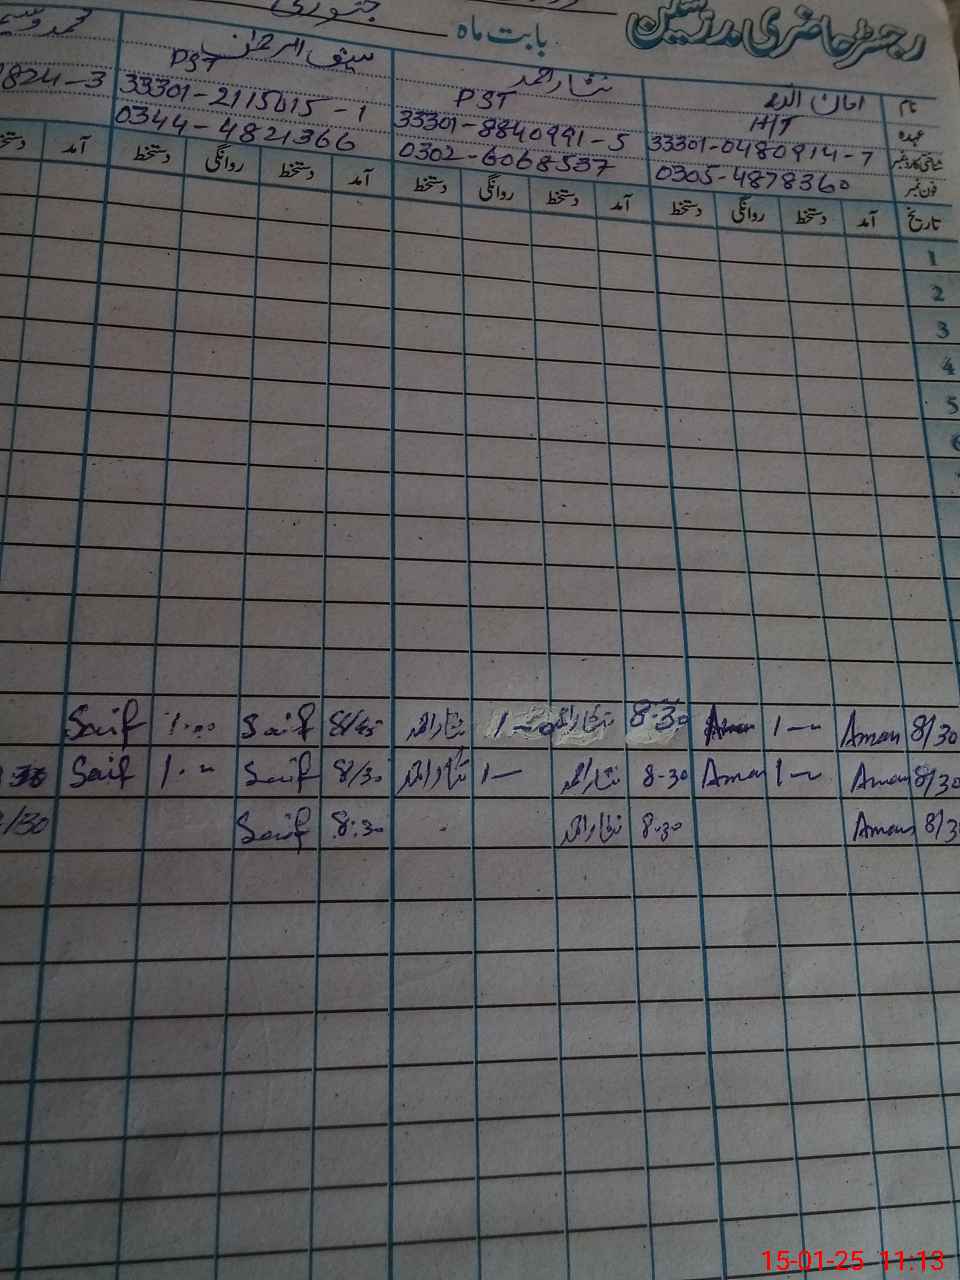 رجسٹر حاضری مدرسین بابت ماہ جنوری
نام امان اللہ نثار احمد سیف الرحمٰن محمد وسیم
عہدہ HT PST PST
33301-0480914-7 33301-8840991-5 33301-2115615-1 824-3
فون نمبر 0305-4878360 0302-6068537 0344-4821366
تاریخ آمد دستخط روانگی دستخط آمد دستخط روانگی دستخط آمد دستخط روانگی دستخط آمد
1
2
3
4
5
6
8/30 Aman 1- Aman 8-30 نثار احمد 1-0 نثار احمد Saif 1.00 Saif
8/30 Aman 1- Aman 8-30 نثار احمد 1- نثار احمد 8/30 Saif 1.- Saif
8/3 Aman 8-30 نثار احمد 8:30 Saif /30
15-01-25 11:13